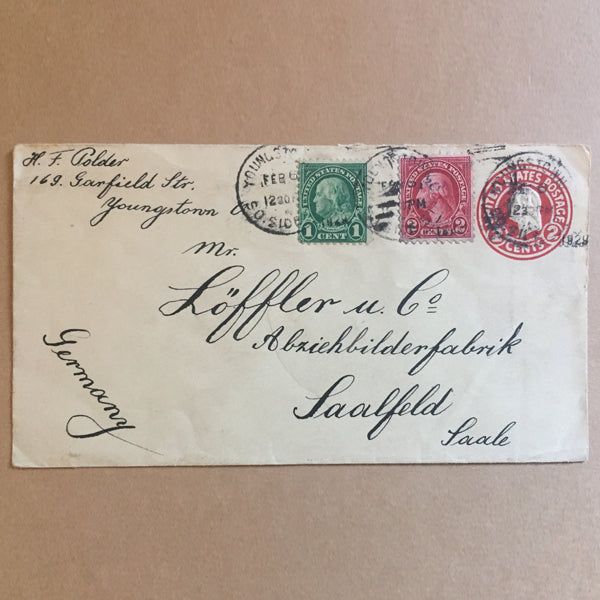 H. F. Polder
169. Garfield Str.
Youngstown O.
YOUNGSTO
FEB 6
1230
UNITED STATES POSTAGE
1 CENT 1
PM
UNITED STATES POSTAGE
2 CENTS 2
UNITED STATES POSTAGE
2 CENTS 2
1929
Mr.
Löffler u. Co
Abziehbilderfabrik
Saalfeld
Saale
Germany